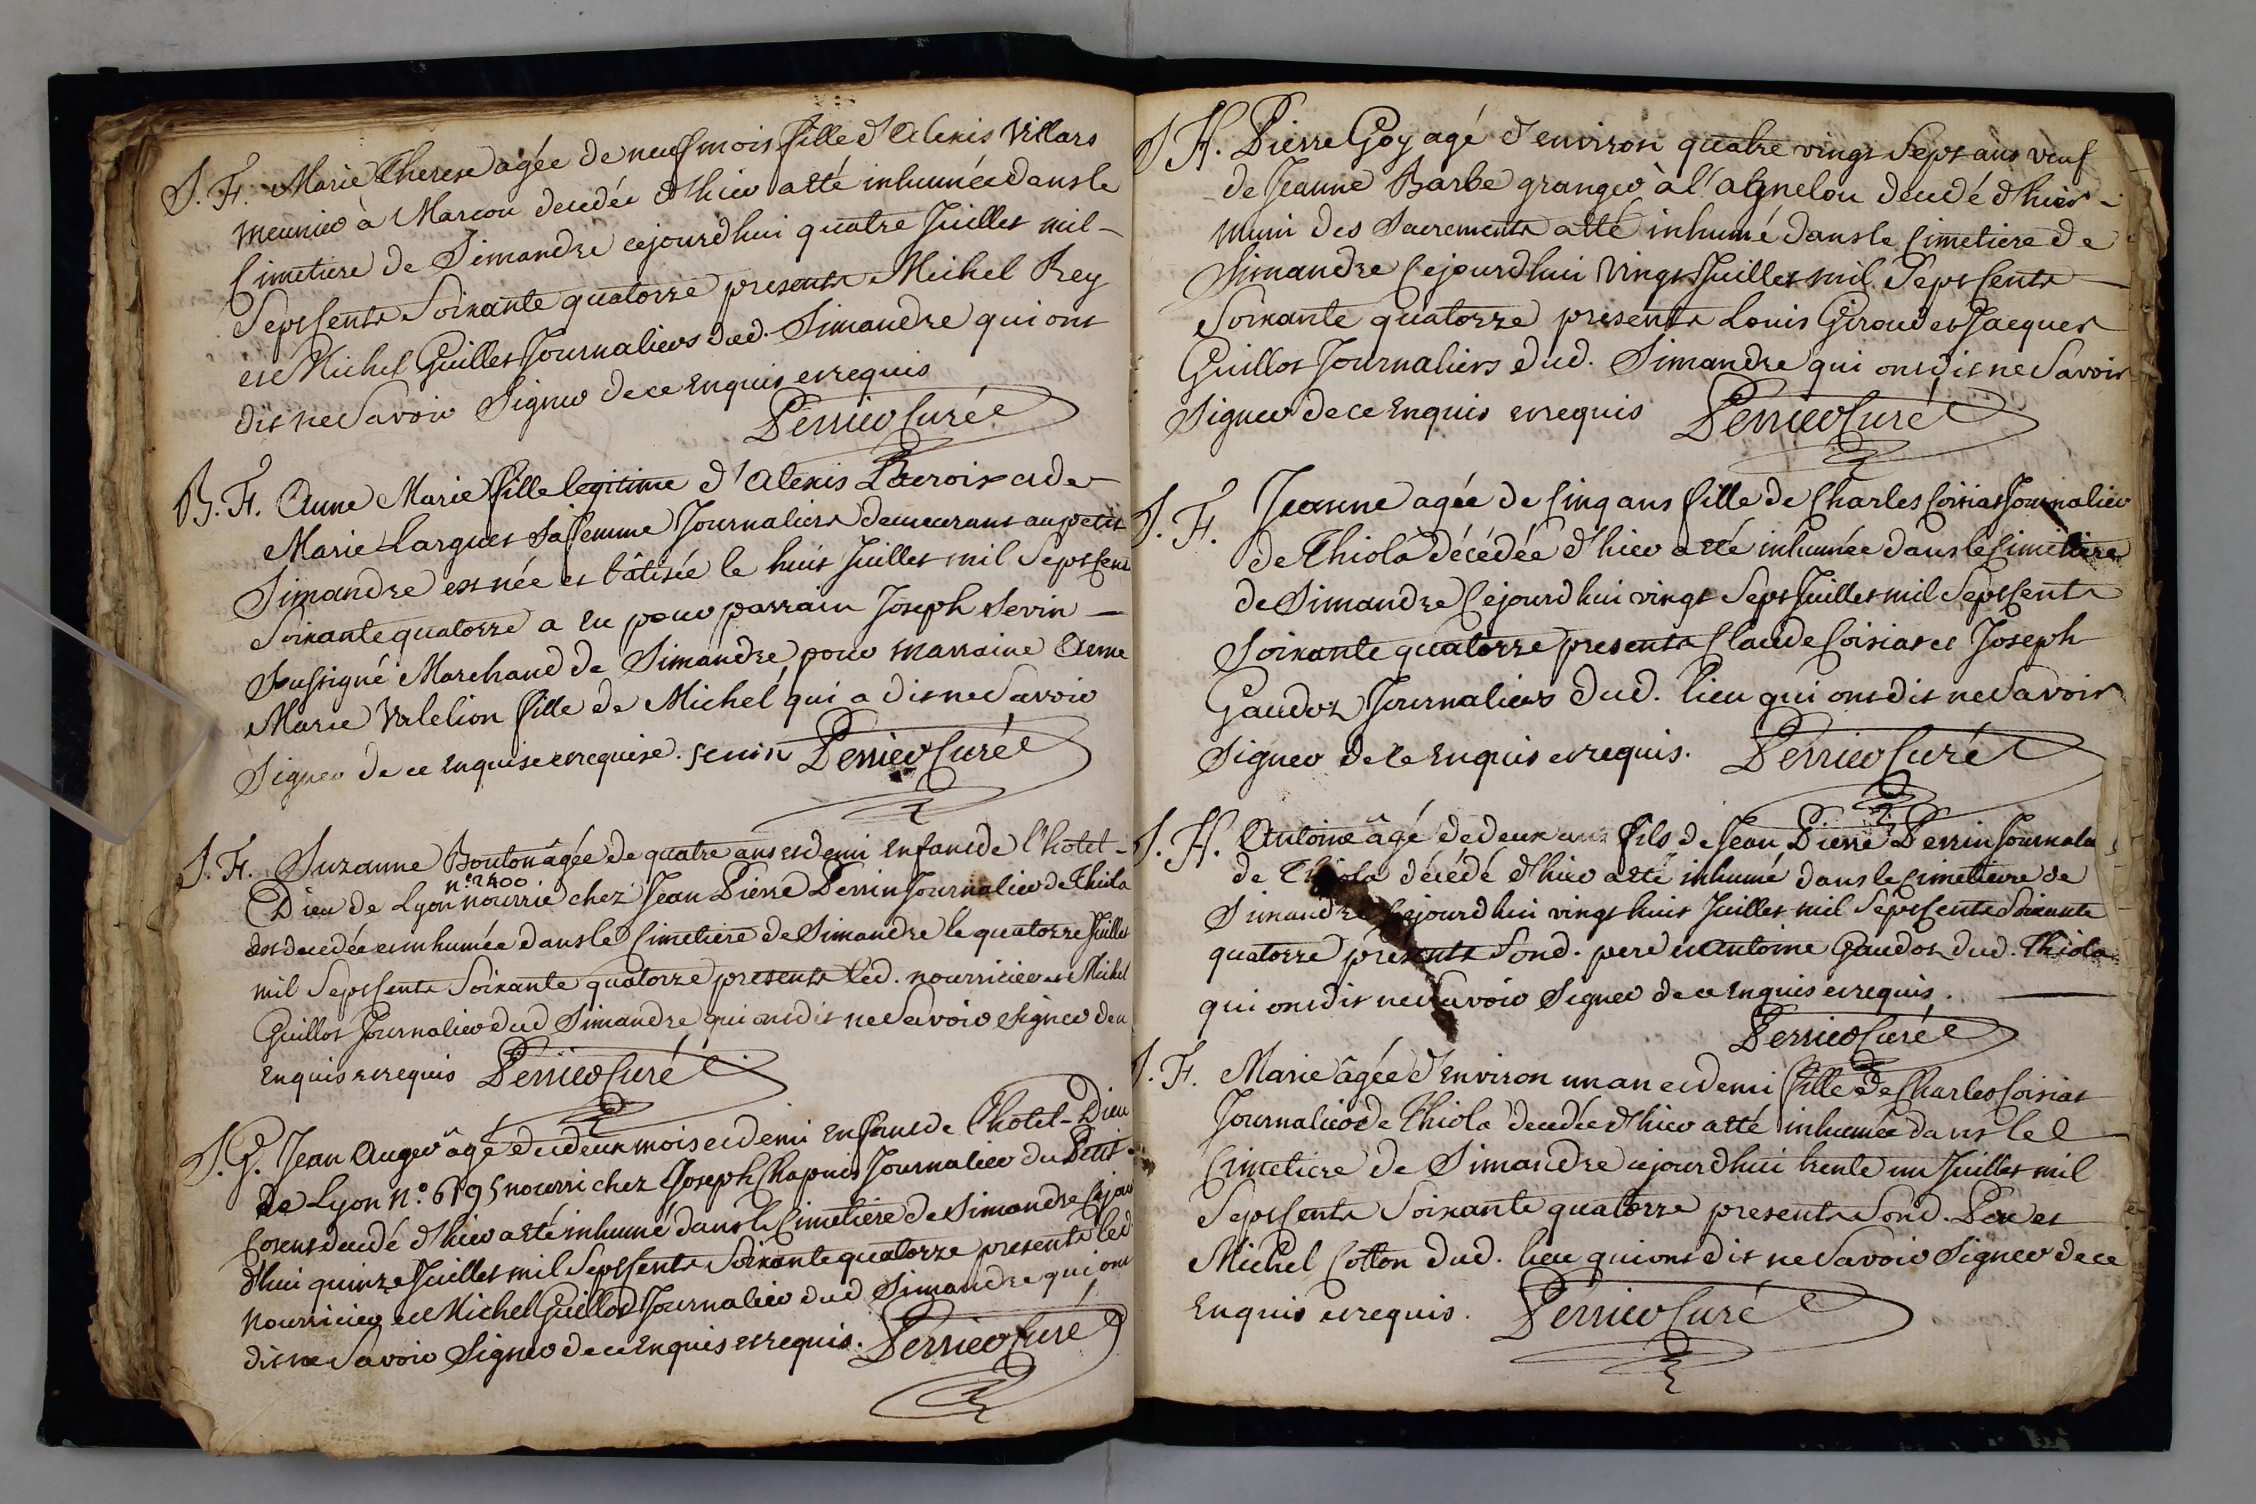 S. F. Marie Therese agée de neuf mois fille d'Alexis Villars
meunier à Marcou decedée d'hier a eté inhumée dans le
Cimetiere de Simandre cejourdhui quatre Juillet mil
Sept Cents Soixante quatorze presents Michel Rey
et Michel Guillet Journaliers dud. Simandre qui ont
dit ne Savoir Signer de ce Enquis et requis
Perrier Curé
B. F. Anne Marie fille legitime d'Alexis Lacroix et de
Marie Largues Sa femme Journaliers demeurant au petit
Simandre est née et bâtisée le huit Juillet mil Sept Cent
Soixante quatorze a eu pour parrain Joseph Sevin
Sussigné Marchand de Simandre pour marraine Anne
Marie Valelion fille de Michel qui a dit ne Savoir
Signer de ce enquise et requise. sevin Perrier Curé
S. F. Suzanne Bouton âgée de quatre ans et demi enfant de l'hotel
n.° 2400
Dieu de Lyon nourrie chez Jean Pierre Perrin Journalier de Thiola
est decedée et inhumée dans le Cimetiere de Simandre le quatorze Juillet
mil Sept Cents Soixante quatorze presents led. nourricier et Michel
Guillot Journalier dud Simandre qui ont dit ne Savoir Signer de ce
enquis et requis Perrier Curé
S. G. Jean Auger âgé de deux mois et demi enfant de l'hotel-Dieu
de Lyon N.° 6195 nourri chez Joseph Chapuis Journalier du Petit
Cosent decedé d'hier a eté inhumé dans le Cimetiere de Simandre Cejour
d'hui quinze Juillet mil Sept Cents Soixante quatorze presents led
Nourricier et Michel Guillot Journalier dud Simandre qui ont
dit ne Savoir Signer de ce enquis et requis. Perrier Curé
S H. Pierre Goy agé d'environ quatre vingt Sept ans veuf
de Jeanne Barbe granger à l'Agnelou decedé d'hier
muni des Sacrements a eté inhumé dans le Cimetiere de
Simandre Cejourdhui vingt Juillet mil Sept Cents
Soixante quatorze presents Louis Giroud et Jacques
Guillot Journaliers dud. Simandre qui ont dit ne Savoir
Signer de ce Enquis et requis Perrier Curé
S. F. Jeanne agée de Cinq ans fille de Charles Coisiat Journalier
de Thiola décédée d'hier a eté inhumée dans le Cimetiere
de Simandre Cejourd hui vingt Sept Juillet mil Sept Cents
Soixante quatorze presents Claude Coisiat et Joseph
Gaudoz Journaliers dud. lieu qui ont dit ne Savoir
Signer de Ce Enquis et requis. Perrier Curé
S. H. Antoine âgé de deux ans fils de Jean Pierre Perrin Journalier
de Thiola décédé d'hier a eté inhumé dans le Cimetierre de
Simandre Cejourd hui vingt huit Juillet mil Sept Cents Soixante
quatorze presents Sond. pere et Antoine Gaudoz dud. Thiola
qui ont dit ne Savoir Signer de ce Enquis et requis.
Perrier Curé
S. F. Marie âgée d'Environ un an et demi fille de Charles Coisiat
Journalier de Thiola decedée d'hier a eté inhumée dans le
Cimetiere de Simandre cejourdhui trente un Juillet mil
Sept Cents Soixante quatorze presents Sond. Pere et
Michel Cotton dud. lieu qui ont dit ne Savoir Signer de ce
Enquis et requis. Perrier Curé